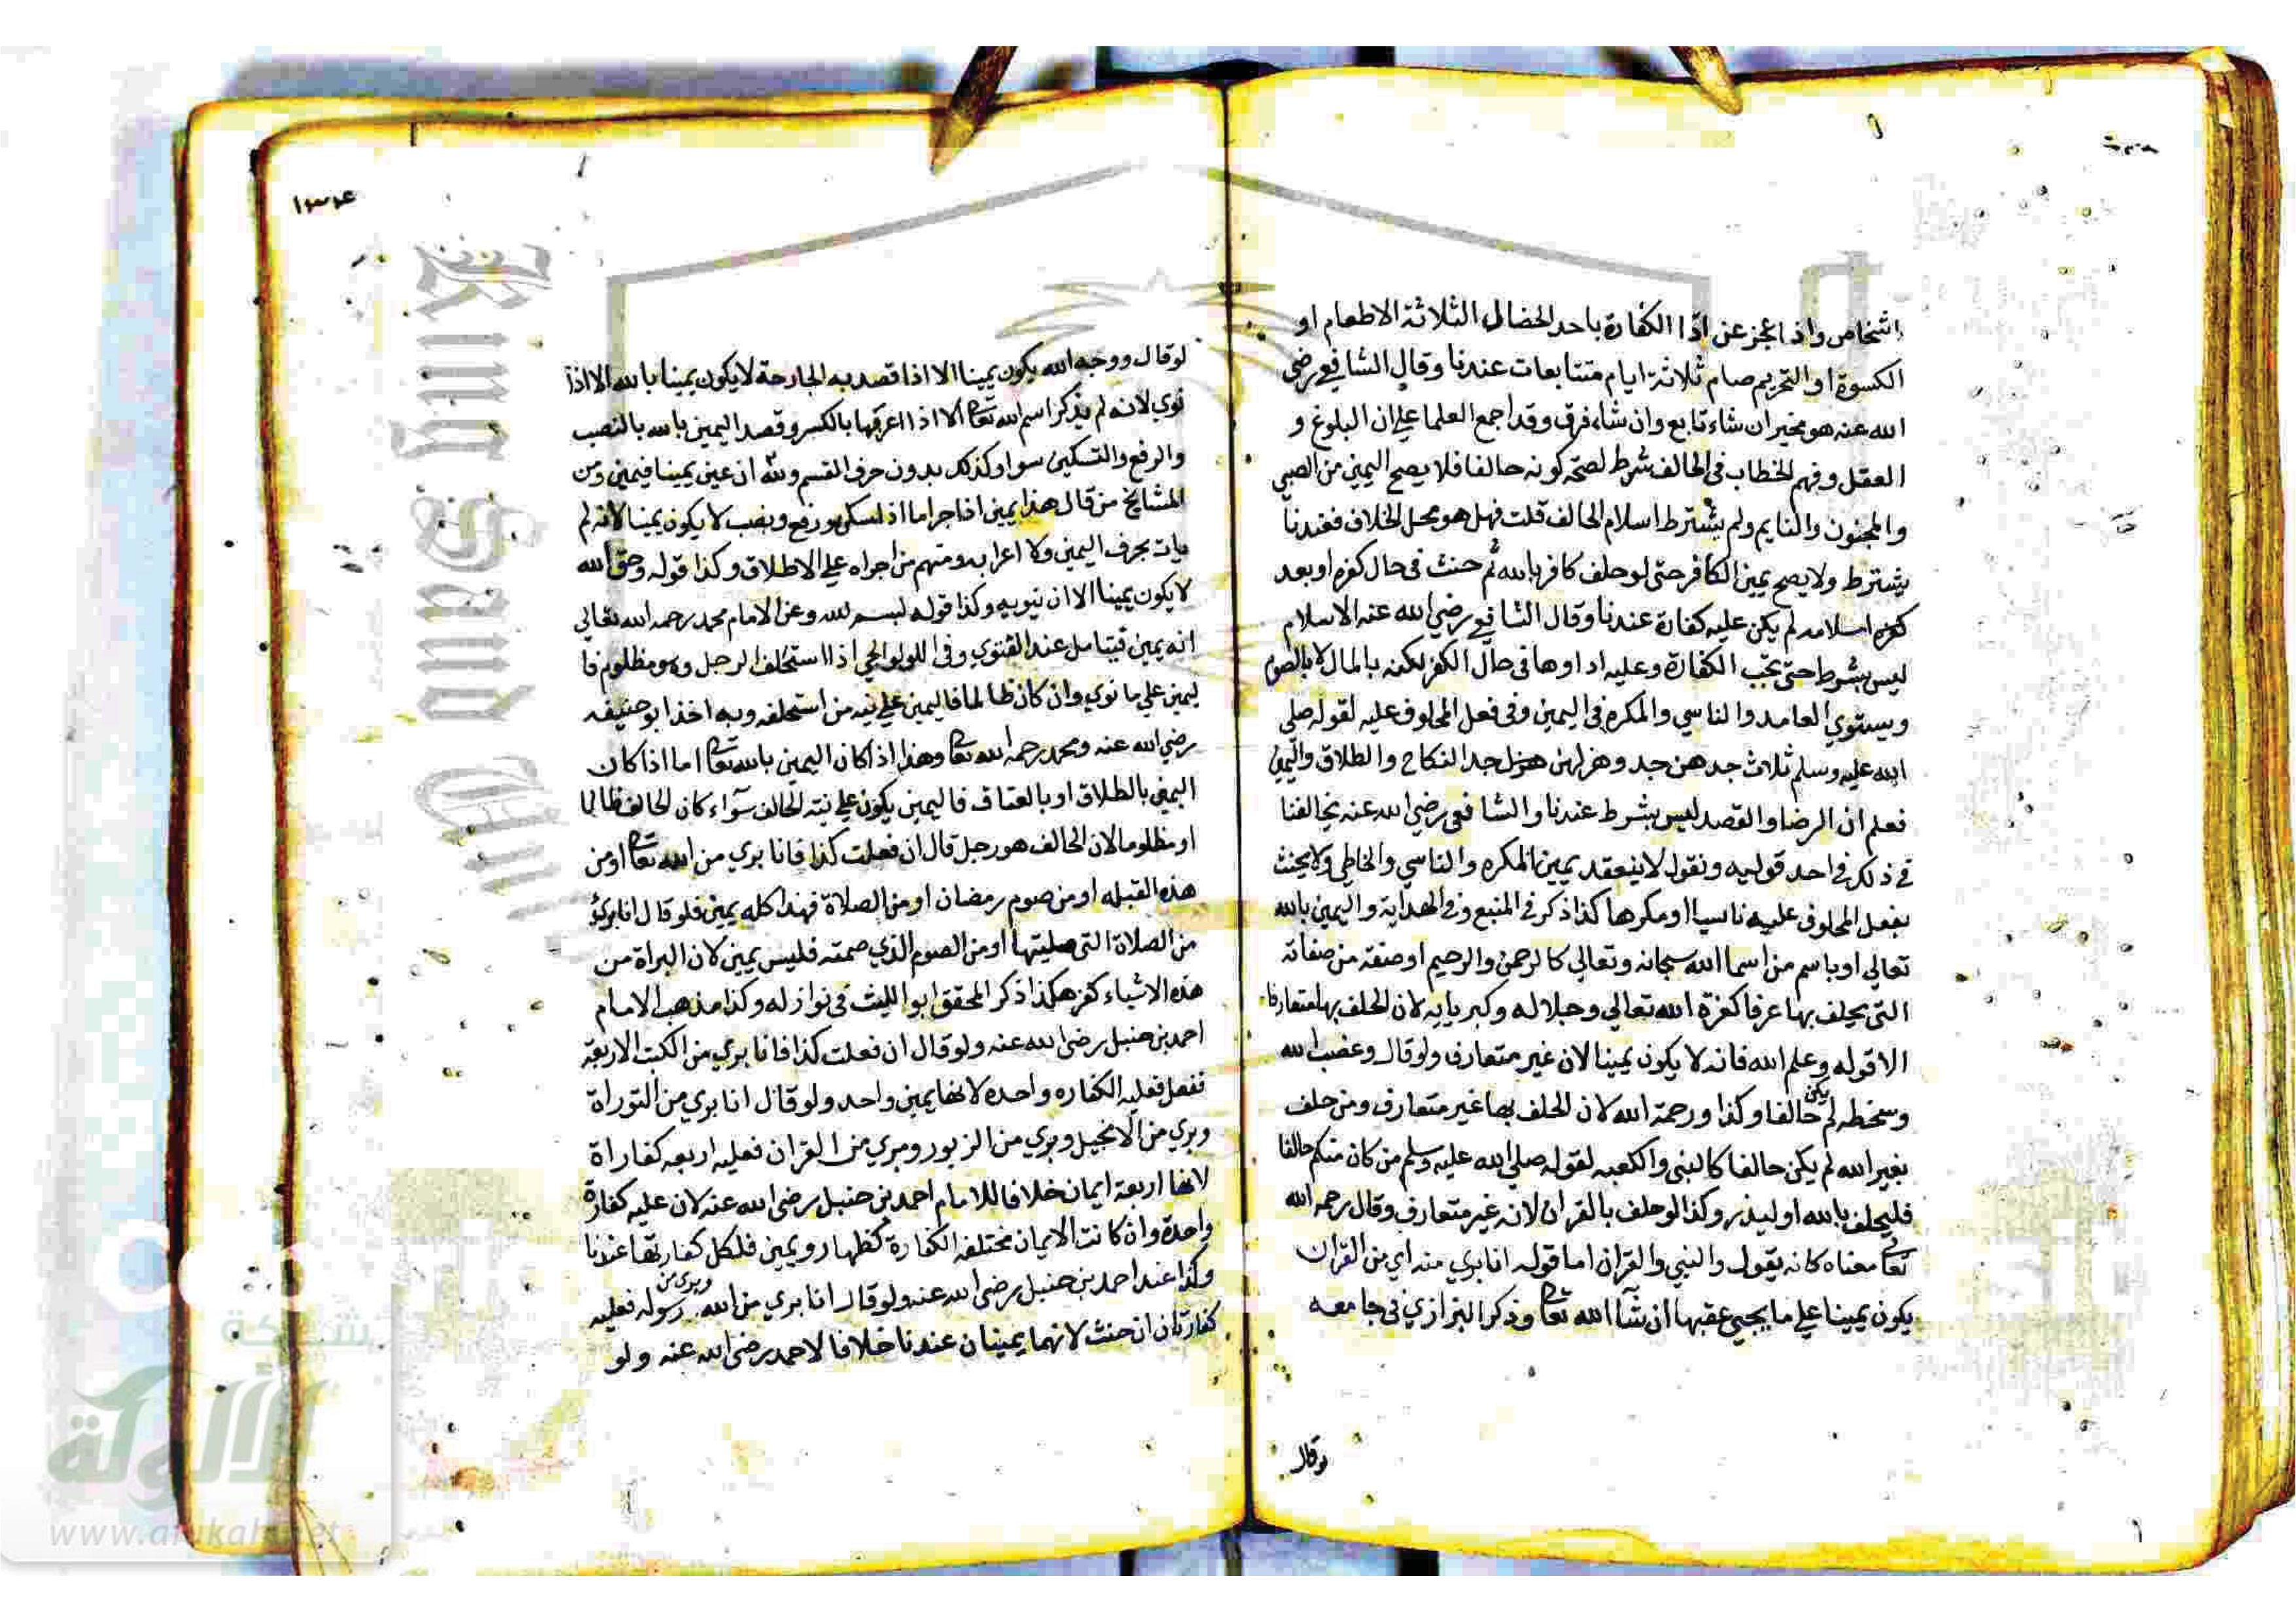 اشخاص واذا عجز عن ادّا الكفارة باحد الخصال الثلاثة الاطعام او
الكسوة او التحرير صام ثلاثة ايام متتابعات عندنا وقال الشافعي رضي
الله عنه هو مخير ان شاء تابع وان شاء فرق وقد اجمع العلما علي ان البلوغ و
العقل وفهم الخطاب في الحالف شرط لصحة كونه حالفا فلا يصح اليمين من الصبي
والمجنون والنايم ولم يشترط اسلام الحالف قلت فهل هو محل الخلاف فعندنا
يشترط ولا يصح يمين الكافر حتى لو حلف كافر بالله ثم حنث في حال كفره او بعد
كفره اسلامه لم يكن عليه كفارة عندنا وقال الشافعي رضي الله عنه الاسلام
ليس بشرط حتى تجب الكفارة وعليه اداوها في حال الكفر لكنه بالمال لا بالصوم
ويستوي العامد والناسي والمكره في اليمين وفي فعل المحلوف عليه لقوله صلي
الله عليه وسلم ثلاث جدهن جد وهزلهن هزل جد النكاح والطلاق واليمين
فعلم ان الرضا والقصد ليس بشرط عندنا والشافعي رضي الله عنه يخالفنا
في ذلك في احد قوليه ونقول لا ينعقد يمين المكره والناسي والخاطي ولا يحنث
بفعل المحلوف عليه ناسيا او مكرها كذا ذكر في المنبع وفي الهداية واليمين بالله
تعالي او باسم من اسما الله سبحانه وتعالي كالرحمن والرحيم او صفة من صفاته
التي يحلف بها عرفا كعزة الله تعالي وجلاله وكبريايه لان الحلف بها متعارفا
الا قوله وعلم الله فانه لا يكون يمينا لان غير متعارف ولو قال وغضب الله
وسخطه لم يكن حالفا وكذا ورحمة الله لان الحلف بها غير متعارف ومن حلف
بغير الله لم يكن حالفا كالنبي والكعبه لقوله صلي الله عليه وسلم من كان منكم حالفا
فليحلف بالله او ليذر وكذا لو حلف بالقران لانه غير متعارف وقال رحمه الله
تعا معناه كانه يقول والنبي والقران اما قوله انا بري منه اي من القران
يكون يمينا علي ما يجيي عقبها ان شآ الله تعا وذكر البزازي في جامعه
لوقال
١٣٣٤
لوقال ووجه الله يكون يمينا الا اذا قصد به الجارحة لا يكون يمينا بالله الا اذا
نوي لانه لم يذكر اسم الله تعا الا اذا اعرقها بالكسر وقصد اليمين بالله بالنصب
والرفع والتسكين سوا وكذلك بدون حرف القسم ولله ان عين يمينا فيمين ومن
المشايخ من قال هذا يمين اذا جر اما اذا سكن ورفع ونصب لا يكون يمينا لانه لم
يات بحرف اليمين ولا اعرابه ومنهم من اجراه علي الاطلاق وكذا قوله وحق الله
لا يكون يمينا الا ان ينويه وكذا قوله لبسم الله وعن الامام محمد رحمه الله تعالي
انه يمين فيتامل عند الفتوي وفي اللولوالجي اذا استحلف الرجل وهو مظلوم فا
ليمين علي ما نوي وان كان ظالما فاليمين علي نيه من استحلفه وبه اخذ ابو حنيفه
رضي الله عنه ومحمد رحمه الله تعا وهذا اذا كان اليمين بالله تعا اما اذا كان
اليمين بالطلاق او بالعتاق فاليمين يكون علي نية الحالف سوآء كان الحالف ظالما
او مظلوما لان الحالف هو رجل قال ان فعلت كذا فانا بري من الله تعا او من
هذه القبله او من صوم رمضان او من الصلاة فهذا كله يمين فلو قال انا بري
من الصلاة التي صليتها او من الصوم الذي صمته فليس يمين لان البراة من
هذه الاشياء كفر هكذا ذكر المحقق ابو الليث في نوازله وكذا مذهب الامام
احمد بن حنبل رضي الله عنه ولو قال ان فعلت كذا فانا بري من الكتب الاربعة
ففعل فعليه الكفاره واحده لانها يمين واحد ولو قال انا بري من التوراة
وبري من الانجيل وبري من الزبور وبري من القران فعليه اربعه كفاراة
لانها اربعة ايمان خلافا للامام احمد بن حنبل رضي الله عنه لان عليه كفارة
واحدة وان كانت الايمان مختلفه الكفارة كظهار ويمين فلكل كفارتها عندنا
وكذا عند احمد بن حنبل رضي الله عنه ولو قال انا بري من الله وبري من رسوله فعليه
كفارتان ان حنث لانهما يمينان عندنا خلافا لاحمد رضي الله عنه ولو
King Saud
شبكة
الألوكة
www.alukah.net